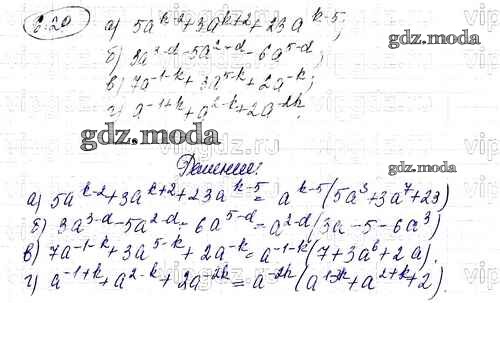 6.20 а) 5a^{k-2}+3a^{k+2}+23a^{k-5};
б) 3a^{3-d}-5a^{2-d}-6a^{5-d};
в) 7a^{-1-k}+3a^{5-k}+2a^{-k};
г) a^{-1+k}+a^{2-k}+2a^{-2k}.
gdz.moda
gdz.moda
Решение:
а) 5a^{k-2}+3a^{k+2}+23a^{k-5}=a^{k-5}(5a^3+3a^7+23)
б) 3a^{3-d}-5a^{2-d}-6a^{5-d}=a^{2-d}(3a-5-6a^3)
в) 7a^{-1-k}+3a^{5-k}+2a^{-k}=a^{-1-k}(7+3a^6+2a).
г) a^{-1+k}+a^{2-k}+2a^{-2k}=a^{-2k}(a^{1-3k}+a^{2+k}+2).